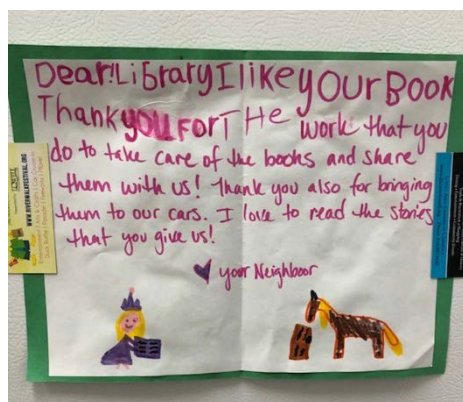 Dear!LibraryIlikeyOURBOOK
ThankyouFORTHe work that you
do to take care of the books and share
them with us! Thank you also for bringing
them to our cars. I love to read the stories
that you give us!
your Neighboor
WWW.RIVERWALKFESTIVAL.ORG